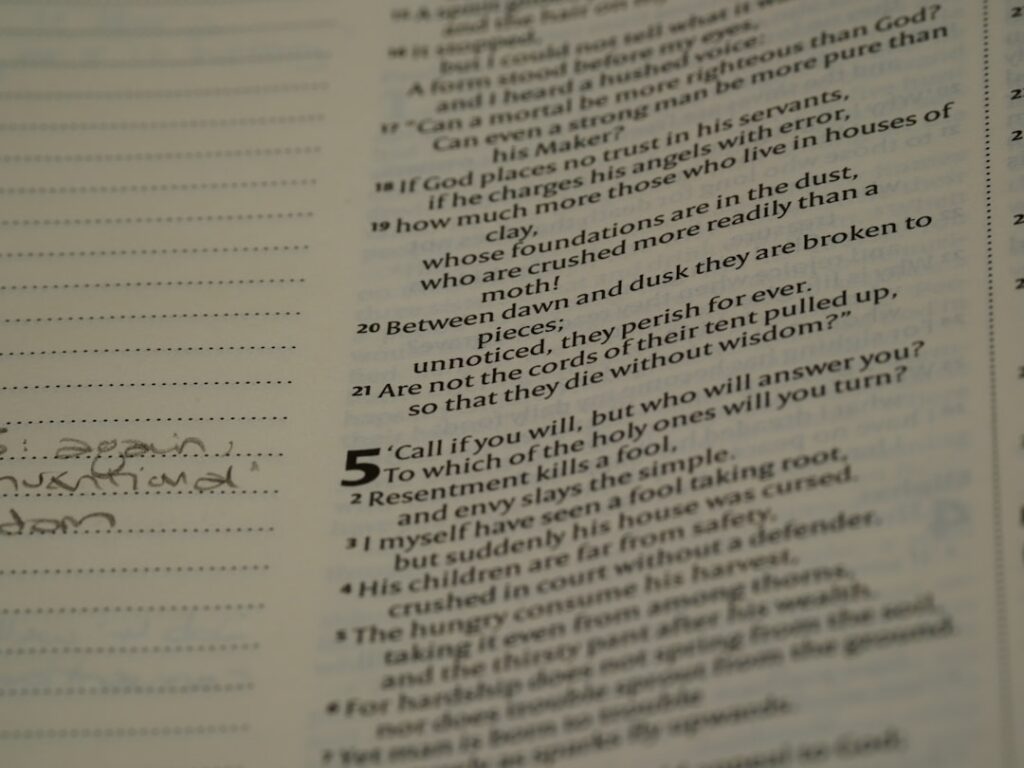 5: again,
"
dom
15 A spirit
and the hair on my
16 It stopped,
but I could not tell what it was
A form stood before my eyes,
and I heard a hushed voice:
17 "Can a mortal be more righteous than God?
Can even a strong man be more pure than
his Maker?
18 If God places no trust in his servants,
if he charges his angels with error,
19 how much more those who live in houses of
clay,
whose foundations are in the dust,
who are crushed more readily than a
moth!
20 Between dawn and dusk they are broken to
pieces;
unnoticed, they perish for ever.
21 Are not the cords of their tent pulled up,
so that they die without wisdom?"
5 'Call if you will, but who will answer you?
To which of the holy ones will you turn?
2 Resentment kills a fool,
and envy slays the simple.
3 I myself have seen a fool taking root,
but suddenly his house was cursed.
4 His children are far from safety,
crushed in court without a defender.
5 The hungry consume his harvest,
taking it even from among thorns,
and the thirsty pant after his wealth.
6 For hardship does not spring from the soil,
nor does trouble sprout from the ground.
7 Yet man is born to trouble
as sparks fly upwards.
to God;